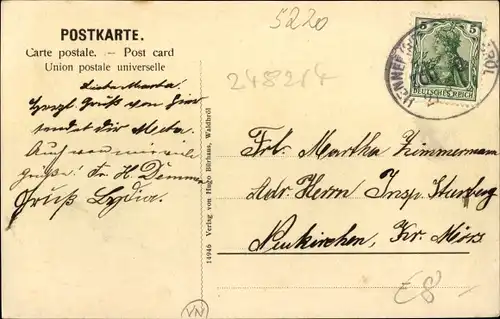 5220
POSTKARTE.
Carte postale. – Post card
Union postale universelle
248214
5 5
DEUTSCHES REICH
HENNEF
Liebe Martha!
Herzl. Gruß von hier
sendet dir Meta.
Auch von mir viele
Grüße: Fr. H.
Gruß Lydia.
14946 Verlag von Hugo Börhaus, Waldbröl
Frl. Martha Zimmermann
Adr. Herrn Insp.
Neukirchen, Kr. Mörs
E8-
VN